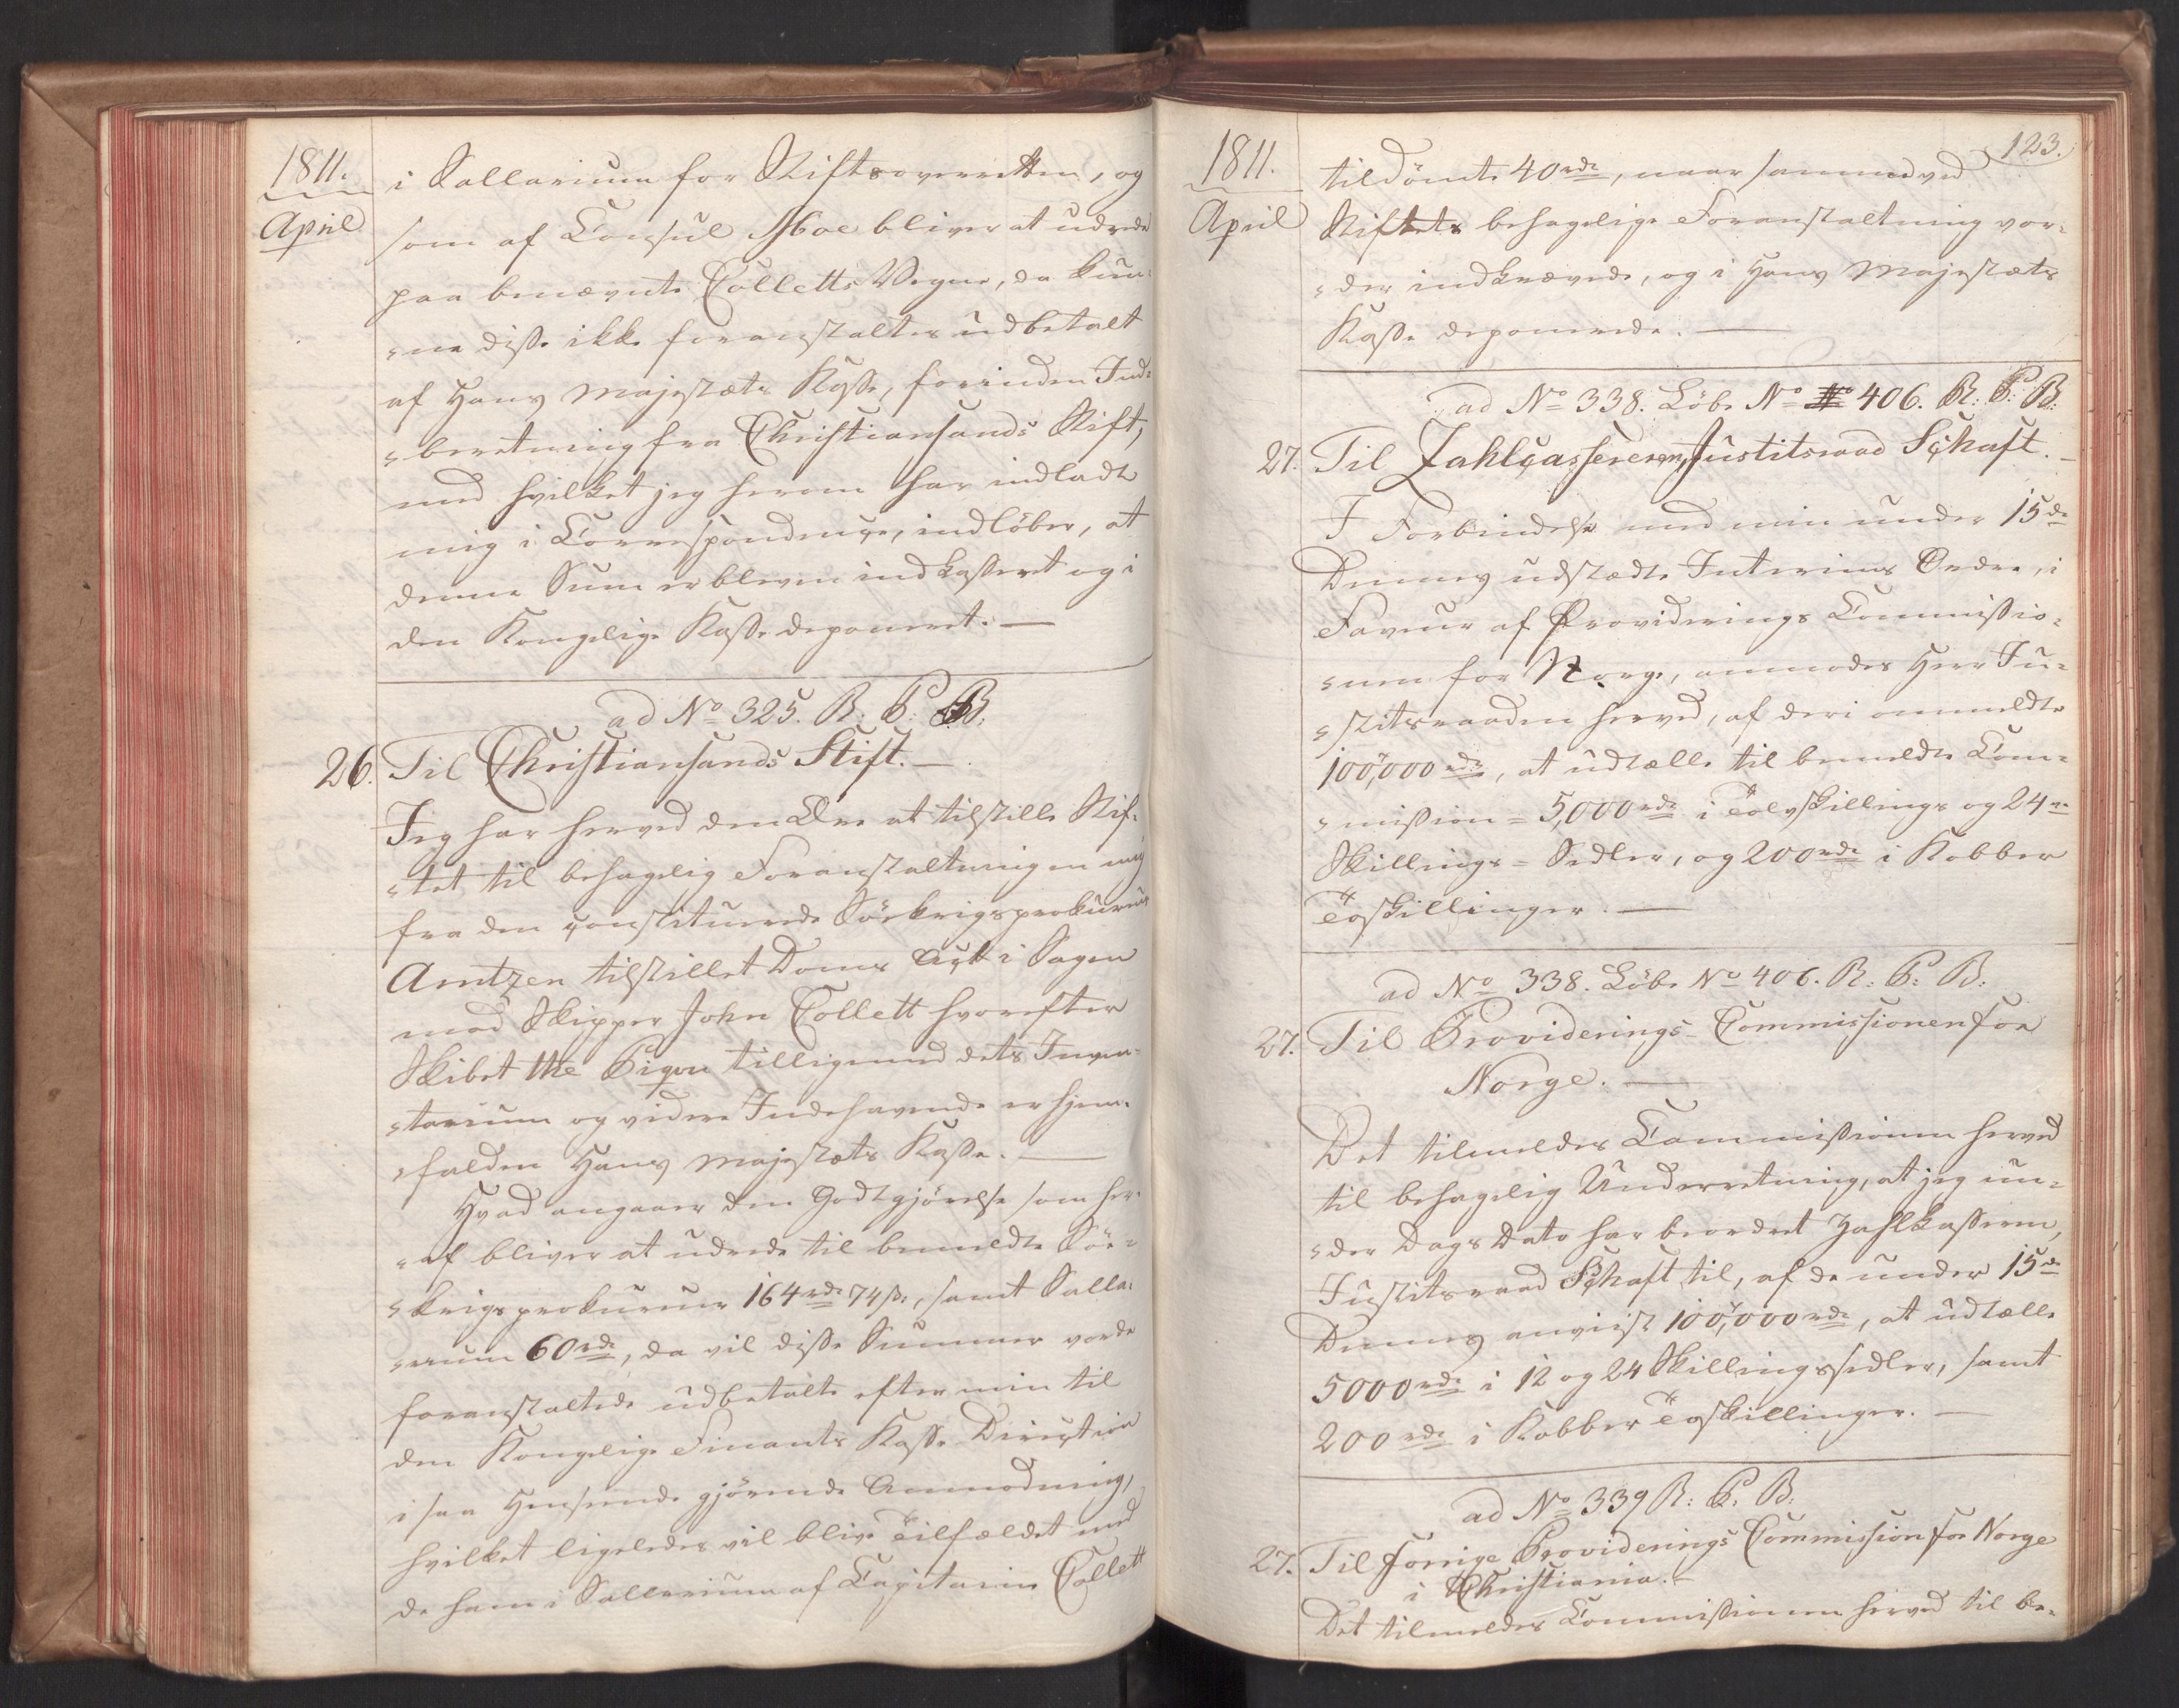 1811.
April
i Sallarium for Stiftsoverretten, og
som af Consul Moe bliver at udrede
paa benævnte Colletts Vegne, da kun-
-ne disse ikke foranstaltes udbetalt
af Hans Majestæts Kasse, forinden Ind-
-beretning fra Christiansands Stift,
med hvilket jeg herom har indladt
mig i Correspondençe, indløber, at
denne Sum er bleven indkasseret og i
den Kongelige Kasse deponeret. —
ad No 325. R: P: B:
26. Til Christiansands Stift. —
Jeg har herved den Ære at tilstille Stif-
-tet til behagelig Foranstaltning en mig
fra den constituerede Søekrigsprokureur
Arntzen tilstillet Doms Act i Sagen
mod Skipper John Collett hvorefter
Skibet the Pigou tilligemed dets Inven-
-tarium og videre Indehavende er hjem-
-falden Hans Majestæts Kasse. —
Hvad angaaer den Godtgjørelse som her-
-af bliver at udrede til bemeldte Søe-
-krigsprokureur 164 rdr 74 ß, samt Salla-
-rium 60 rdr, da vil disse Summer vorde
foranstaltede udbetalte efter min til
den Kongelige Finants Kasse Direction
i saa Henseende gjørende Anmodning,
hvilket ligeledes vil blive Tilfældet med
de ham i Sallarium af Capitain Collett
1811.
April
123.
tildømte 40 rdr, naar samme ved
Stiftets behagelige Foranstaltning vor-
-der indkrævede, og i Hans Majestæts
Kasse deponerede. —
ad No 338. Løbe No 406. R: P: B:
27. Til Zahlcassereren, Justitsraad Schaft. —
I Forbindelse med min under 15de
Dennes udstædte Interims Ordre, i
Faveur af Providerings Commissio-
-nen for Norge, anmodes Herr Ju-
-stitsraaden herved, af de i ommeldte
100,000 rdr, at udtælle til bemeldte Com-
-mission = 5,000 rdr i Tolvskillings og 24 re
Skillings = Sedler, og 200 rdr i Kobber
Toskillinger. —
ad No 338. Løbe No 406. R: P: B:
27. Til Providerings-Commissionen for
Norge. —
Det tilmeldes Commissionen herved
til behagelig Underretning, at jeg un-
-der Dags Dato har beordret Zahlkasseren,
Justitsraad Schaft til, af de under 15de
Dennes anviist 100,000 rdr, at udtælle
5000 rdr i 12 og 24 Skillingssedler, samt
200 rdr i Kobber Toskillinger. —
ad No 339 R: P: B:
27. Til forrige Providerings Commission for Norge
i Christiania. —
Det tilmeldes Commissionen herved til be-